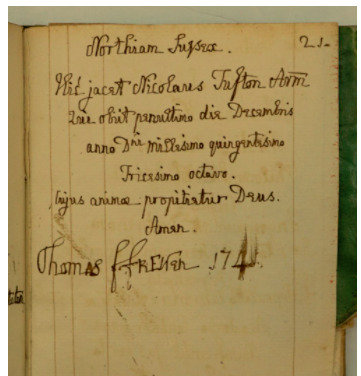 Northiam Sussex. 21.
Hic jacet Nicolaus Tufton Arm
Qui obiit penultimo die Decembris
anno Dni Millesimo quingentesimo
Tricesimo octavo.
Cujus animæ propitietur Deus.
Amen.
Thomas ffREWen 174